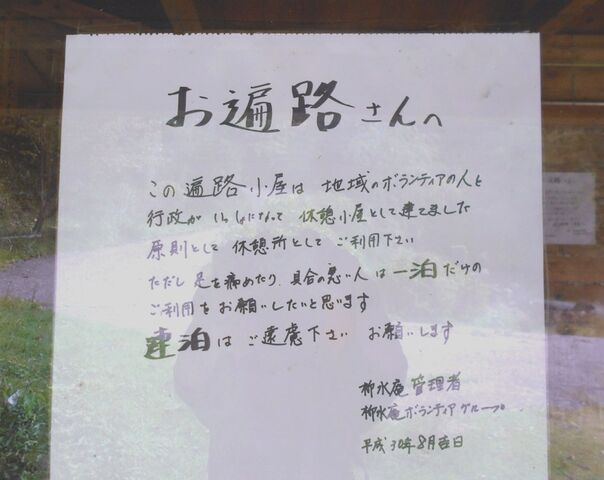 お遍路さんへ
この遍路小屋は 地域のボランティアの人と
行政が いっしょになって 休憩小屋として建てました
原則として 休憩所として ご利用下さい
ただし 足を痛めたり、具合の悪い人は一泊だけの
ご利用をお願いしたいと思います
連泊はご遠慮下さい お願いします
柳水庵 管理者
柳水庵ボランティアグループ
平成30年8月吉日